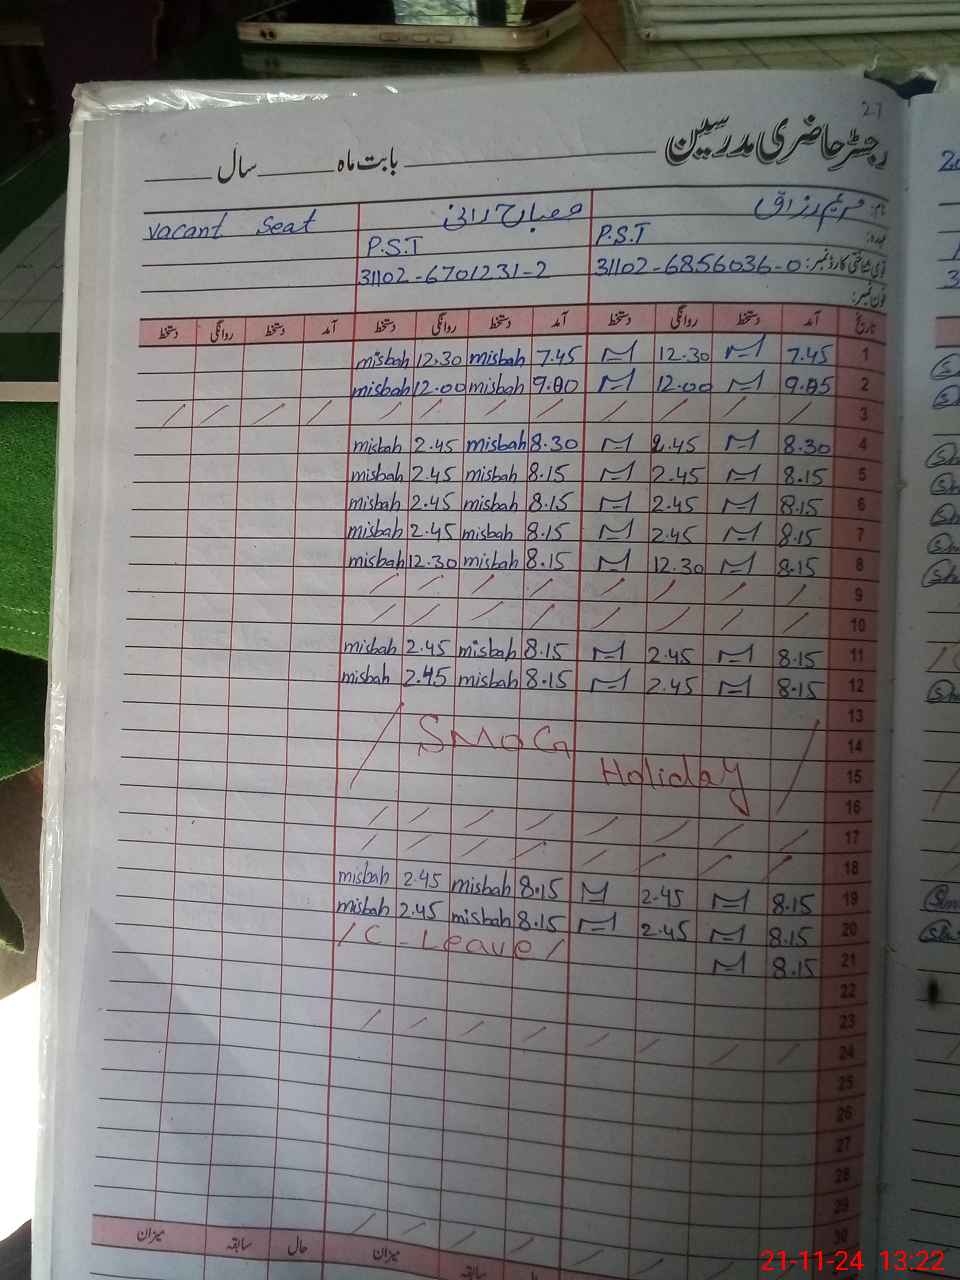 27
رجسٹر حاضری مدرسین بابت ماہ سال
نام: مریم رزاق مصباح رانی vacant Seat
عہدہ: P.S.T P.S.T
قومی شناختی کارڈ نمبر: 31102-6856036-0 31102-6701231-2
فون نمبر:
تاریخ آمد دستخط روانگی دستخط آمد دستخط روانگی دستخط آمد دستخط روانگی دستخط
1 7.45 12.30 7.45 misbah 12.30 misbah
2 9.05 12.00 9.00 misbah 12.00 misbah
3
4 8.30 2.45 8.30 misbah 2.45 misbah
5 8.15 2.45 8.15 misbah 2.45 misbah
6 8.15 2.45 8.15 misbah 2.45 misbah
7 8.15 2.45 8.15 misbah 2.45 misbah
8 8.15 12.30 8.15 misbah 12.30 misbah
9
10
11 8.15 2.45 8.15 misbah 2.45 misbah
12 8.15 2.45 8.15 misbah 2.45 misbah
13
14 SMOG
15 Holiday
16
17
18
19 8.15 2.45 8.15 misbah 2.45 misbah
20 8.15 2.45 8.15 misbah 2.45 misbah
21 8.15 C-Leave
22
23
24
25
26
27
28
29
30
میزان سابقہ حال میزان سابقہ
21-11-24 13:22